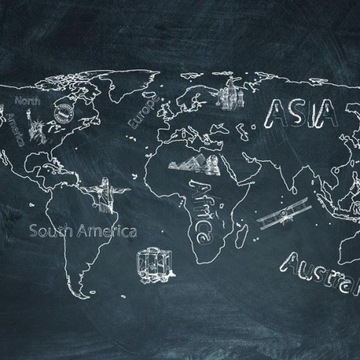 North
America
Europe
ASIA
Africa
South America
Austral